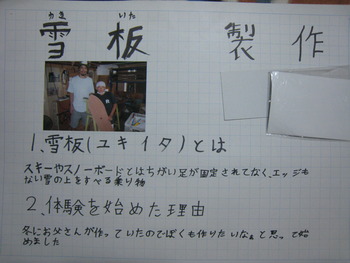 雪板 製作
1.雪板(ユキイタ)とは
スキーやスノーボードとはちがい足が固定されてなく、エッジも
ない雪の上をすべる乗り物
2.体験を始めた理由
冬にお父さんが作っていたのでぼくも作りたいなぁと思って始
めました